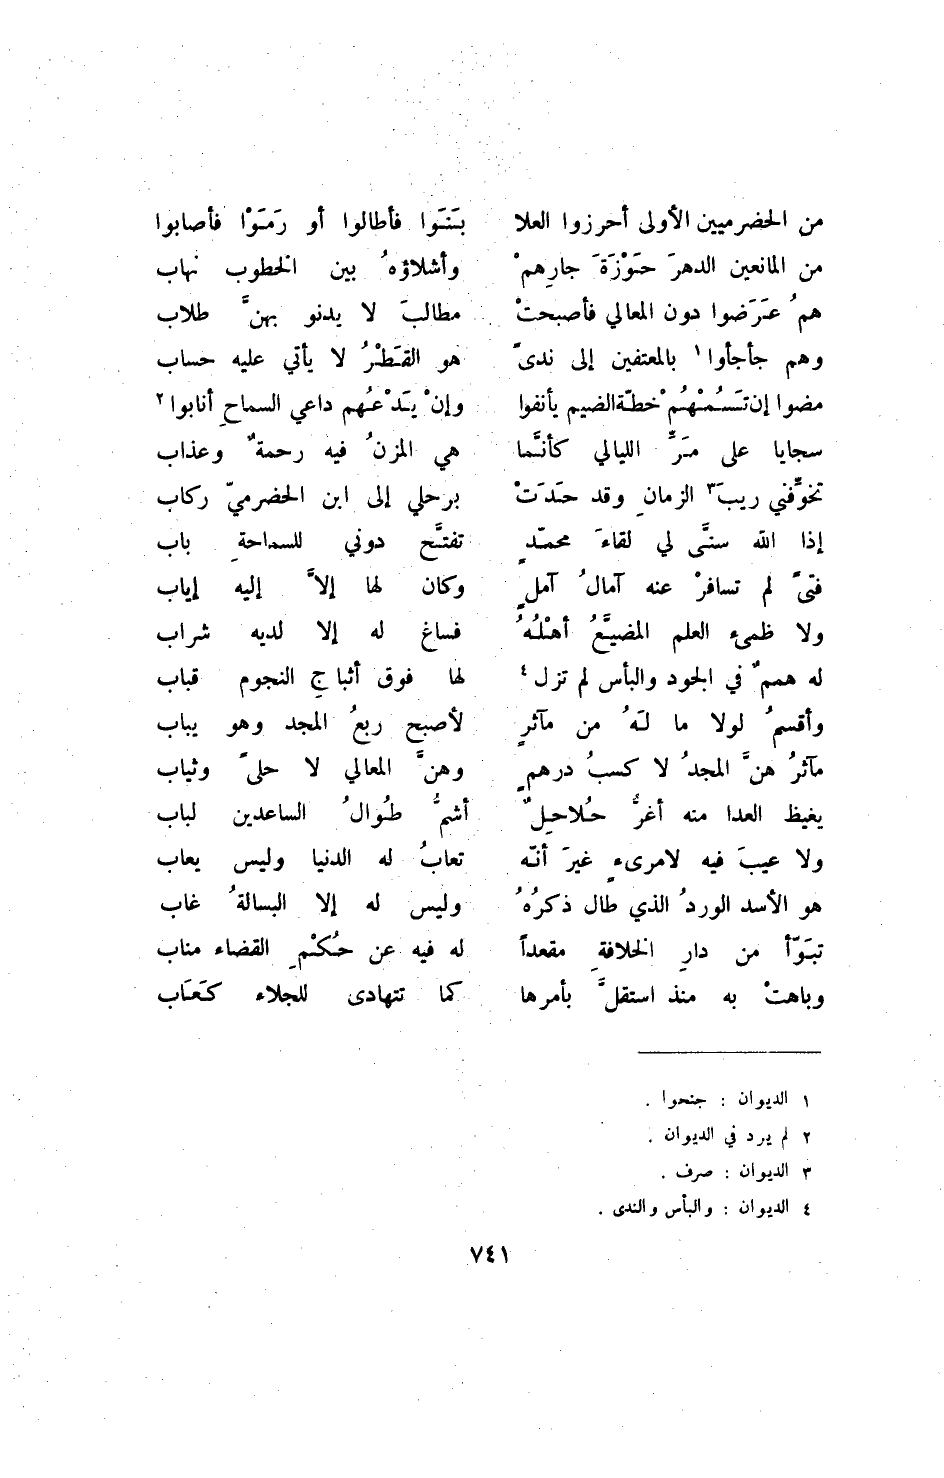 من الحضرميين الأولى أحرزوا العلا بَنَوا فأطالوا أو رَمَوْا فأصابوا
من المانعين الدهرَ حَوْزَةَ جارِهمْ وأشلاؤهُ بين الخطوب نهاب
همُ عرَضوا دون المعالي فأصبحتْ مطالبَ لا يدنو بهنَّ طلاب
وهم جأجأوا١ بالمعتفين إلى ندىً هو القَطْرُ لا يأتي عليه حساب
مضوا إن تَسُمْهُمْ خطّة الضيم يأنفوا وإنْ يَدْعُهم داعي السماحِ أنابوا٢
سجايا على مَرِّ الليالي كأنَّما هي المزنُ فيه رحمةٌ وعذاب
تخوِّفني ريبَ٣ الزمانِ وقد حَدَتْ برحلي إلى ابن الحضرميّ ركاب
إذا الله سنَّى لي لقاءَ محمّدٍ تفتَّح دوني للسماحةِ باب
فتىً لم تسافرْ عنه آمالُ آملٍ وكان لها إلاَّ إليه إياب
ولا ظمىء العلم المضيَّعُ أهْلُهُ فساغ له إلا لديه شراب
له هممٌ في الجود والبأس لم تزل٤ لها فوق أثباجِ النجوم قباب
وأقسمُ لولا ما لَهُ من مآثرٍ لأصبح ربعُ المجد وهو يباب
مآثرُ هنَّ المجدُ لا كسبُ درهمٍ وهنَّ المعالي لا حلىً وثياب
يغيظ العدا منه أغرُّ حُلاحِلٌ أشمُّ طُوالُ الساعدين لباب
ولا عيبَ فيه لامرىءٍ غيرَ أنّه تعابُ له الدنيا وليس يعاب
هو الأسد الوردُ الذي طال ذكرُهُ وليس له إلا البسالةُ غاب
تبَوّأ من دارِ الخلافةِ مقعداً له فيه عن حُكْمِ القضاء مناب
وباهتْ به منذ استقلَّ بأمرها كما تتهادى للجلاء كَعَاب
١ الديوان : جنحوا .
٢ لم يرد في الديوان .
٣ الديوان : صرف .
٤ الديوان : والبأس والندى .
٧٤١